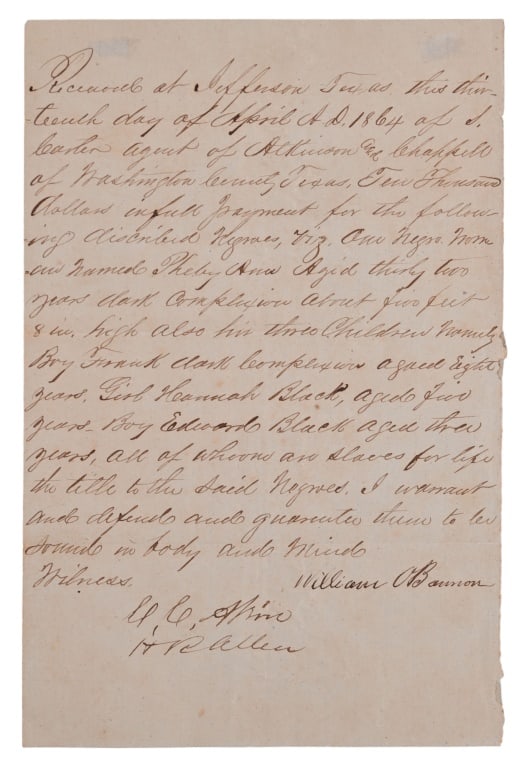 Received at Jefferson Texas. this thir-
-teenth day of April A.D. 1864 of S.
Carter agent of Atkinson Chappell
of Washington County Texas, Ten Thousand
dollars in full payment for the follow-
ing discribed Negroes, viz. One Negro Wom-
an Named Pheby Ann Aged thirty two
years dark Complexion about five feet
8 in. high also her three Children Namely
Boy Frank dark Complexion agaed Eight
years. Girl Hannah Black, aged five
years Boy Edward Black aged three
years, all of whoom are Slaves for life
the title to the said Negroes. I warrant
and defend and guarentee them to be
Sound in body and Mind
Witness. William OBannon
H R Allen